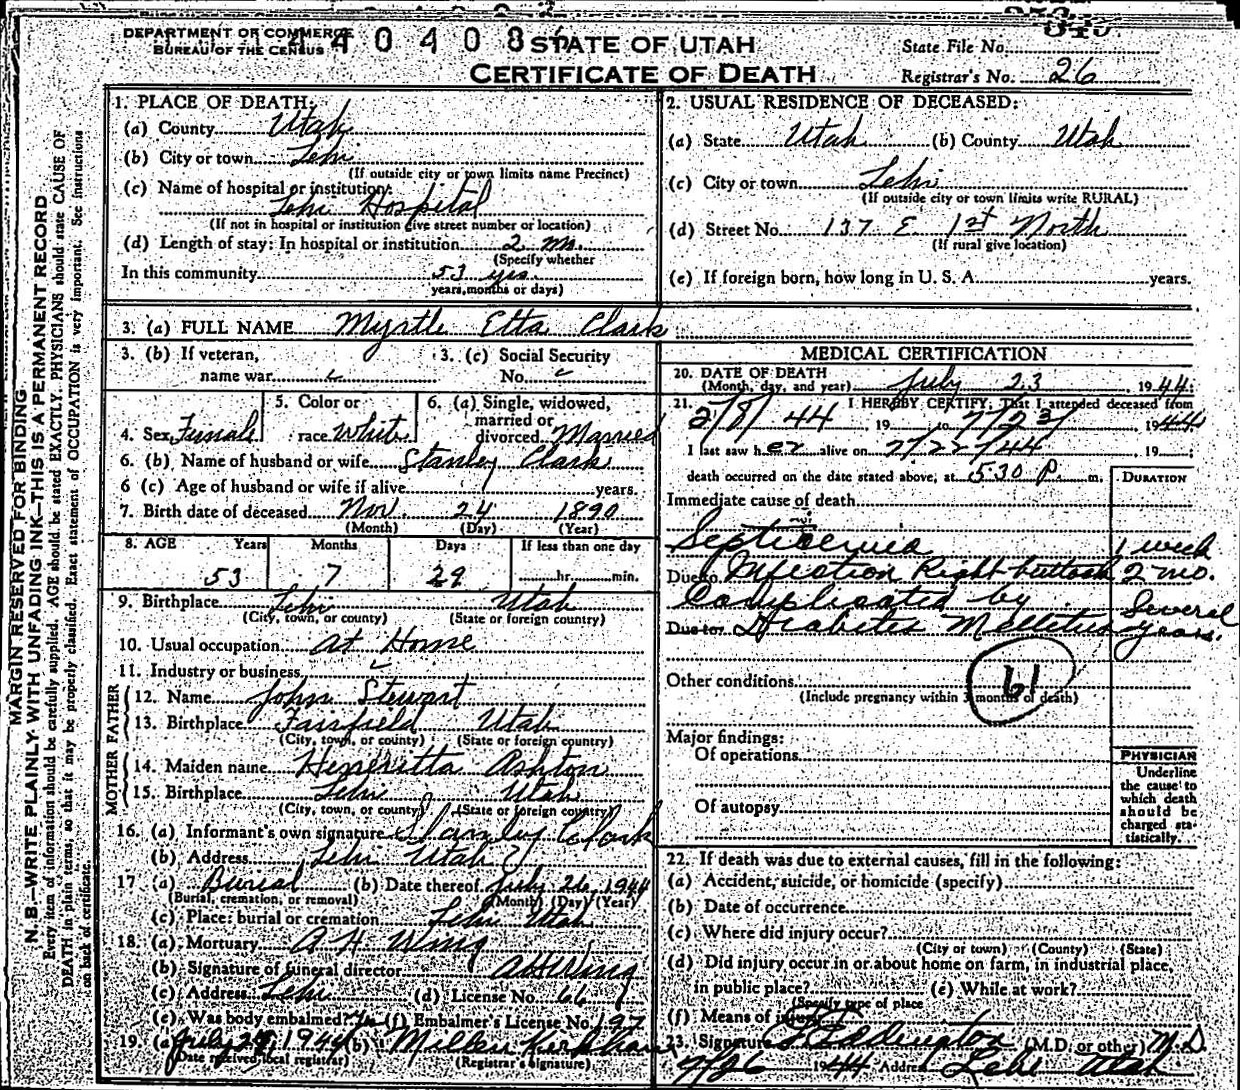 DEPARTMENT OF COMMERCE
BUREAU OF THE CENSUS
4 0 4 0 8
STATE OF UTAH
CERTIFICATE OF DEATH
State File No.
Registrar's No. 26
MARGIN RESERVED FOR BINDING
N. B.—WRITE PLAINLY WITH UNFADING INK—THIS IS A PERMANENT RECORD
Every item of information should be carefully supplied. AGE should be stated EXACTLY. PHYSICIANS should state CAUSE OF
DEATH in plain terms, so that it may be properly classified. Exact statement of OCCUPATION is very important. See instructions
on back of certificate.
1. PLACE OF DEATH:
(a) County Utah
(b) City or town Lehi
(If outside city or town limits name Precinct)
(c) Name of hospital or institution:
Lehi Hospital
(If not in hospital or institution give street number or location)
(d) Length of stay: In hospital or institution 2 mo.
(Specify whether
In this community 53 yrs.
years, months or days)
2. USUAL RESIDENCE OF DECEASED:
(a) State Utah (b) County Utah
(c) City or town Lehi
(If outside city or town limits write RURAL)
(d) Street No. 137 E. 1st North
(If rural give location)
(e) If foreign born, how long in U. S. A. years.
3. (a) FULL NAME Myrtle Etta Clark
3. (b) If veteran, 3. (c) Social Security
name war No.
4. Sex Female 5. Color or race White 6. (a) Single, widowed, married or divorced Married
6. (b) Name of husband or wife Stanley Clark
6 (c) Age of husband or wife if alive years.
7. Birth date of deceased Nov. 24 1890
(Month) (Day) (Year)
8. AGE Years Months Days If less than one day
53 7 29 hr. min.
9. Birthplace Lehi Utah
(City, town, or county) (State or foreign country)
10. Usual occupation At Home
11. Industry or business
FATHER
12. Name John Stewart
13. Birthplace Fairfield Utah
(City, town, or county) (State or foreign country)
MOTHER
14. Maiden name Henrietta Ashton
15. Birthplace Lehi Utah
(City, town, or county) (State or foreign country)
16. (a) Informant's own signature Stanley Clark
(b) Address Lehi Utah
17 (a) Burial (b) Date thereof July 26, 1944
(Burial, cremation, or removal) (Month) (Day) (Year)
(c) Place: burial or cremation Lehi Utah
18. (a) Mortuary A H Wing
(b) Signature of funeral director A H Wing
(c) Address Lehi (d) License No. 66
(e) Was body embalmed? (f) Embalmer's License No. 197
19. (a) July 29, 1944 (b)
(Date received local registrar) (Registrar's signature)
MEDICAL CERTIFICATION
20. DATE OF DEATH
(Month, day, and year) July 23 , 1944
21. I HEREBY CERTIFY, That I attended deceased from
2/8/44 19 to 7/23/ 1944
I last saw her alive on 7/22/44 19
death occurred on the date stated above, at 530 P. m.
DURATION
Immediate cause of death
Septicemia 1 week
Due to Infection Right buttock 2 mo.
Complicated by Several
Due to: Diabetes Mellitus years.
61
Other conditions
(Include pregnancy within 3 months of death)
Major findings:
Of operations
Of autopsy
PHYSICIAN
Underline
the cause to
which death
should be
charged sta-
tistically.
22. If death was due to external causes, fill in the following:
(a) Accident, suicide, or homicide (specify)
(b) Date of occurrence
(c) Where did injury occur?
(City or town) (County) (State)
(d) Did injury occur in or about home on farm, in industrial place,
in public place? (e) While at work?
(Specify type of place
(f) Means of injury
23. Signature Eddington (M.D. or other) M.D.
7/26 1944 Address Lehi Utah